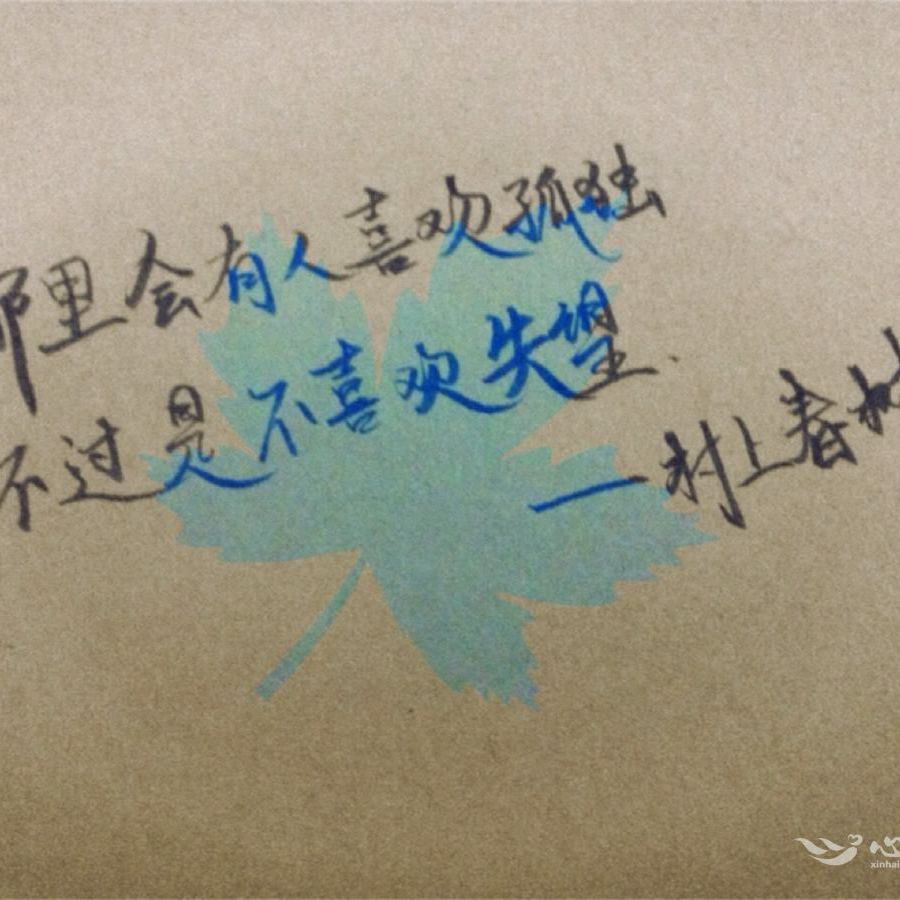 那里会有人喜欢孤独
不过是不喜欢失望.
—村上春树
心
xinhai